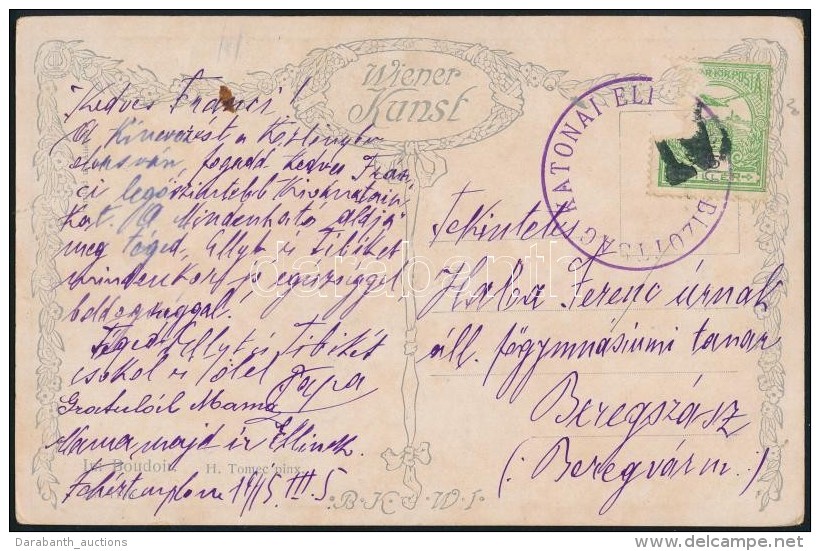 Wiener
Kunst
Kedves Franci!
A kinevezést a Közlönyben
olvasván, fogadd kedves Fran-
ci legőszintébb kivánatain-
kat. A Mindenható áldja
meg téged, Ellyt és Tibikét
mindenkor jó egészséggel
boldogsággal!
Téged Ellyt és Tibikét
csókol és ölel Papa
Gratulál Mama
Mama majd ír Ellinek.
Im Boudoir H. Tomec pinx.
Fehértemplom 1915 III. 5
KATONAI ELL
BIZOTTSÁG
MAGYAR KIR. POSTA
FILLÉR
Tekintetes
Ferenc úrnak
áll. főgymnásiumi tanár
Beregszász
(: Beregvárm :)
B.K.W.I.
darabanth
Darabanth_auctions
delcampe.net